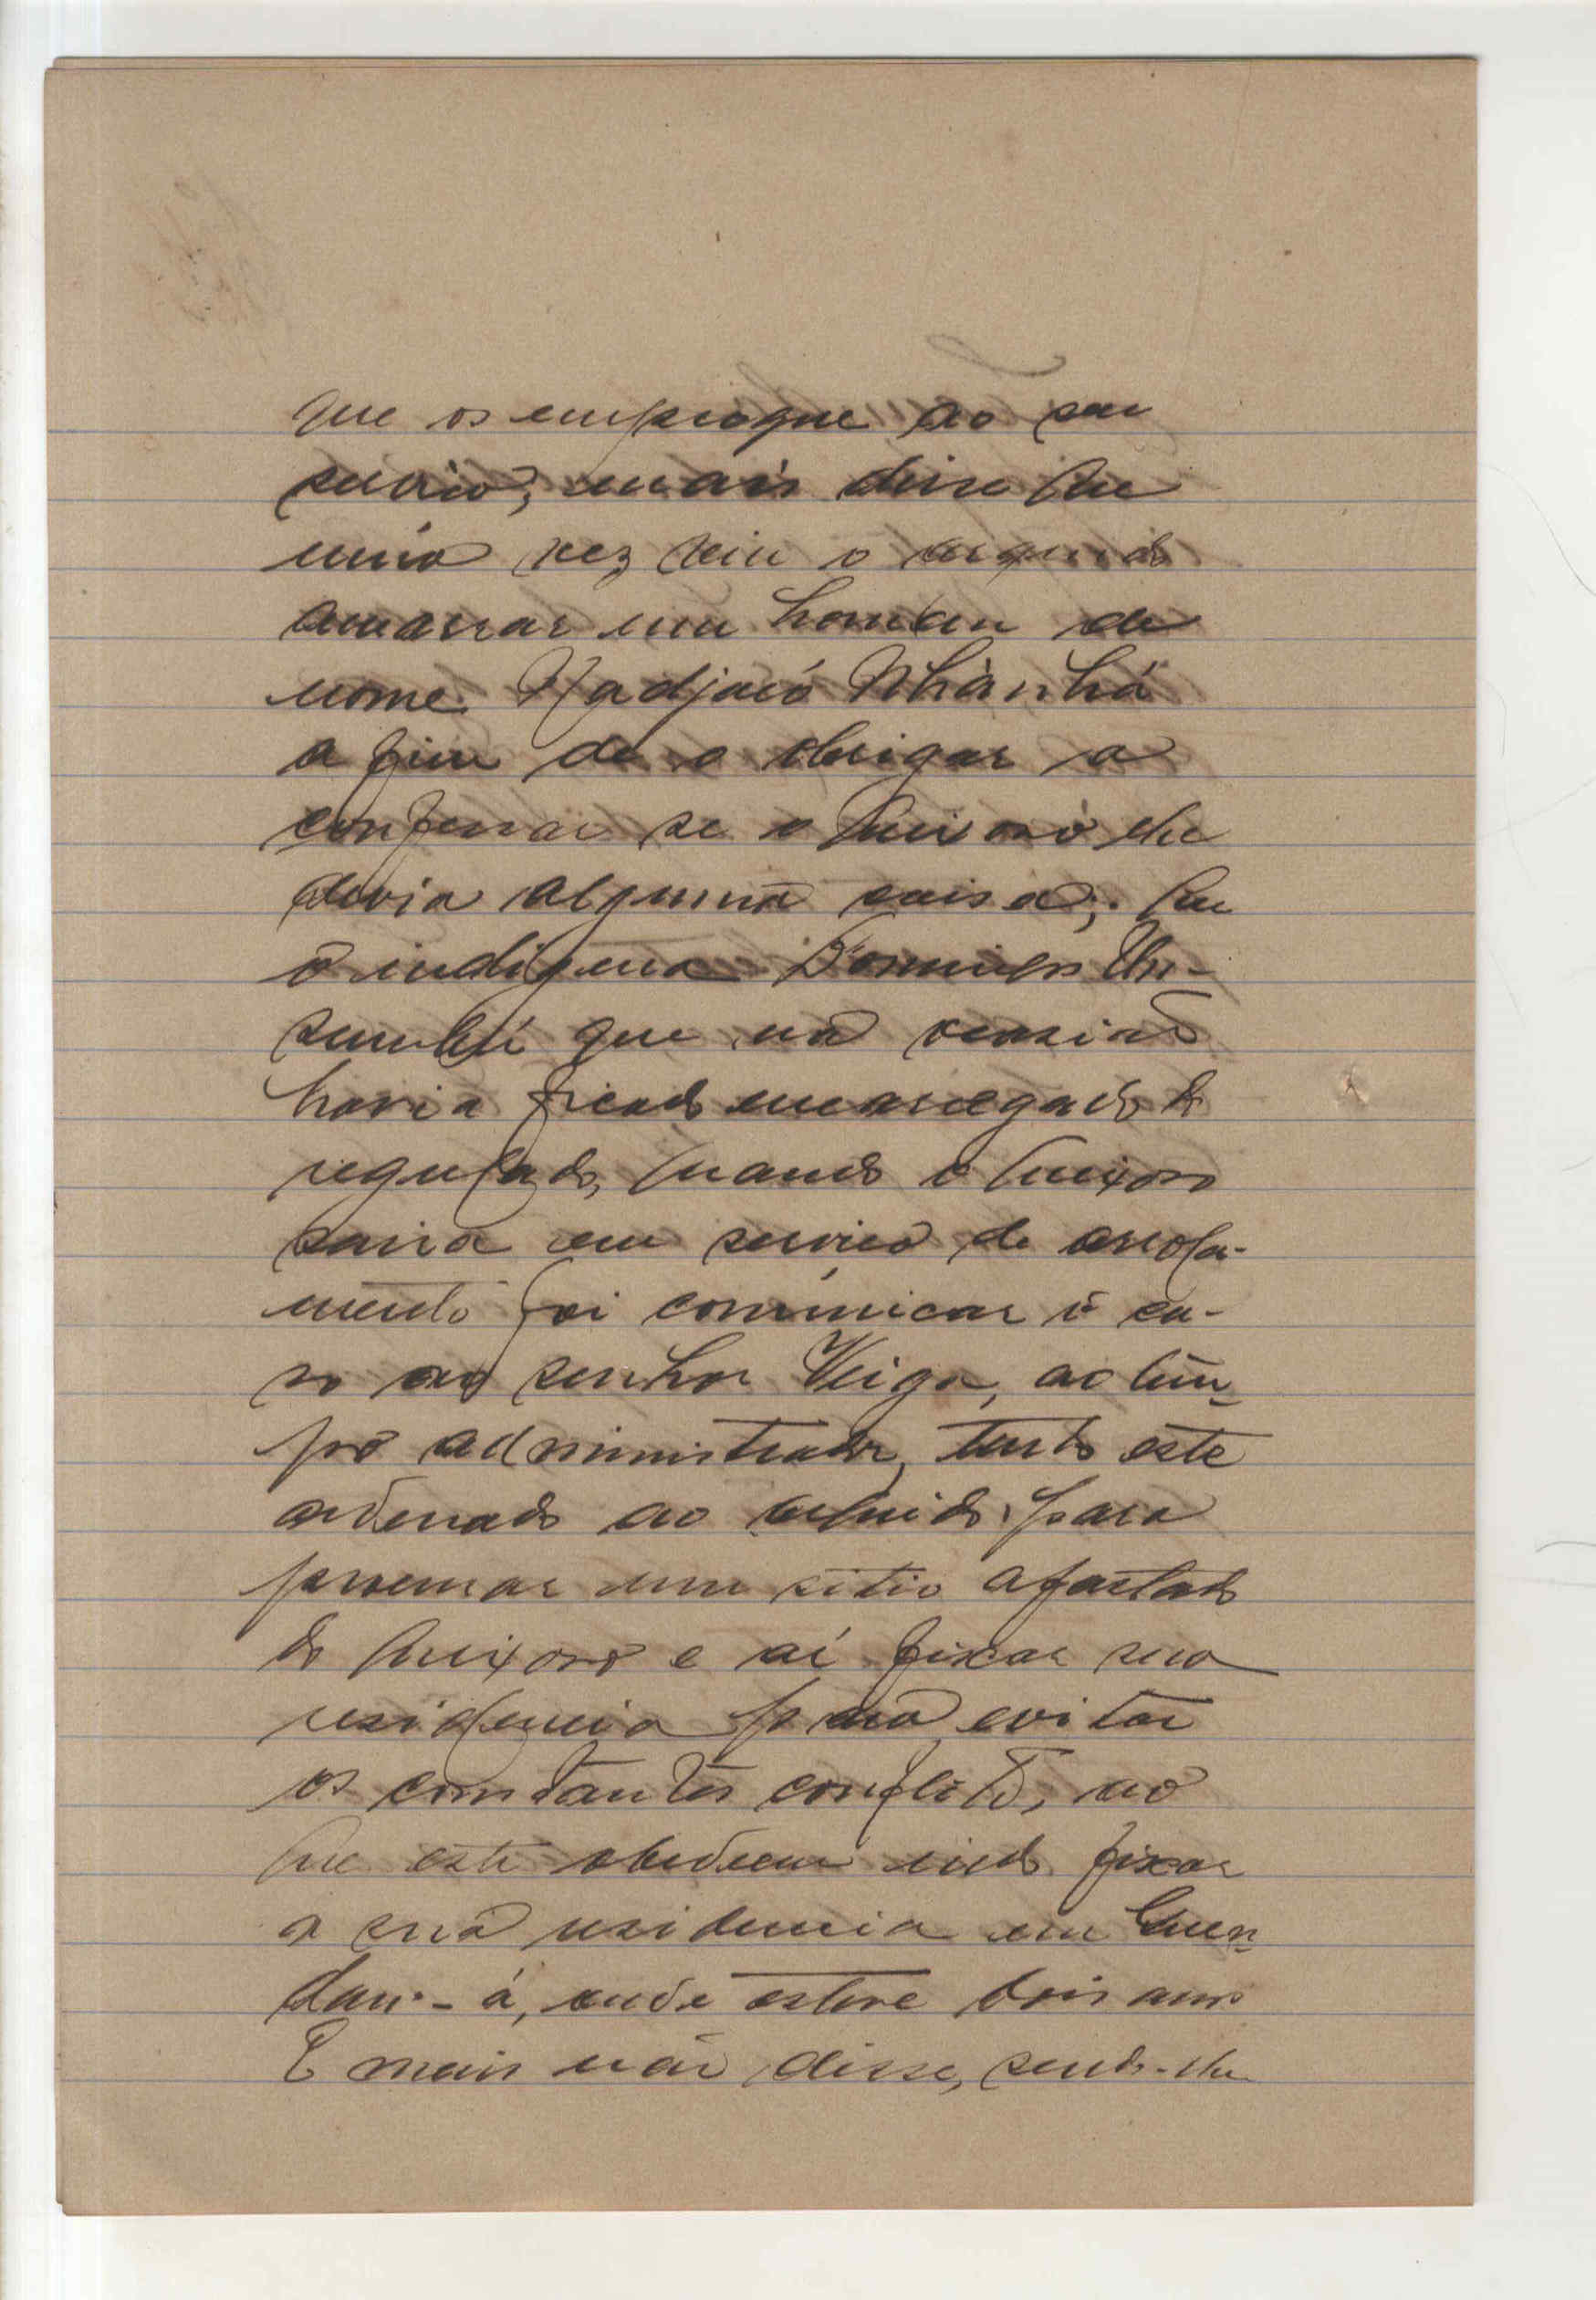 que os empregue ao seu
serviço; mais disse que
uma vez viu o arguido
amarrar um homem de
nome Nhànhá
a fim de o obrigar a
confessar se o queixoso lhe
devia alguma coisa; que
o indigena Domingos
que na ocasião
havia ficado encarregado do
regulado, quando o queixoso
saira em serviço de arrola-
mento foi comunicar o ca-
so ao senhor Veiga, ao tem-
po administrador, tendo este
ordenado ao arguido para
procurar um sitio afastado
do queixoso e aí fixar sua
residencia para evitar
os constantes conflitos, ao
que este obedeceu indo fixar
a sua residencia em
onde esteve dois anos
E mais não disse, sendo-lhe